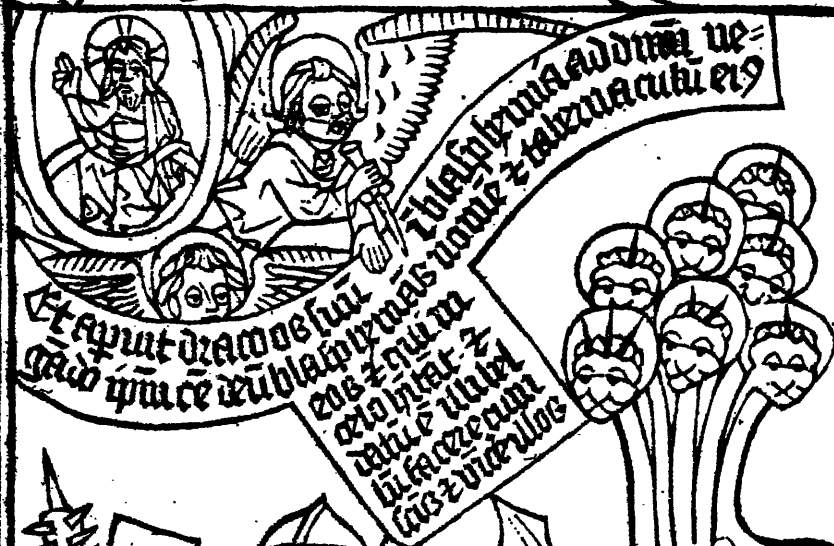 Et apuit draco os suũ ĩ blasphemia ad dm̃ ne=
gãdo ipm̃ cẽ deũ blasphemãs nomẽ ⁊ tabernaculũ eiꝯ
eos ⁊ qui in
celo hĩtãt ⁊
datũ ẽ illi bel
lũ facere cum
sc̃is ⁊ vĩcere illos